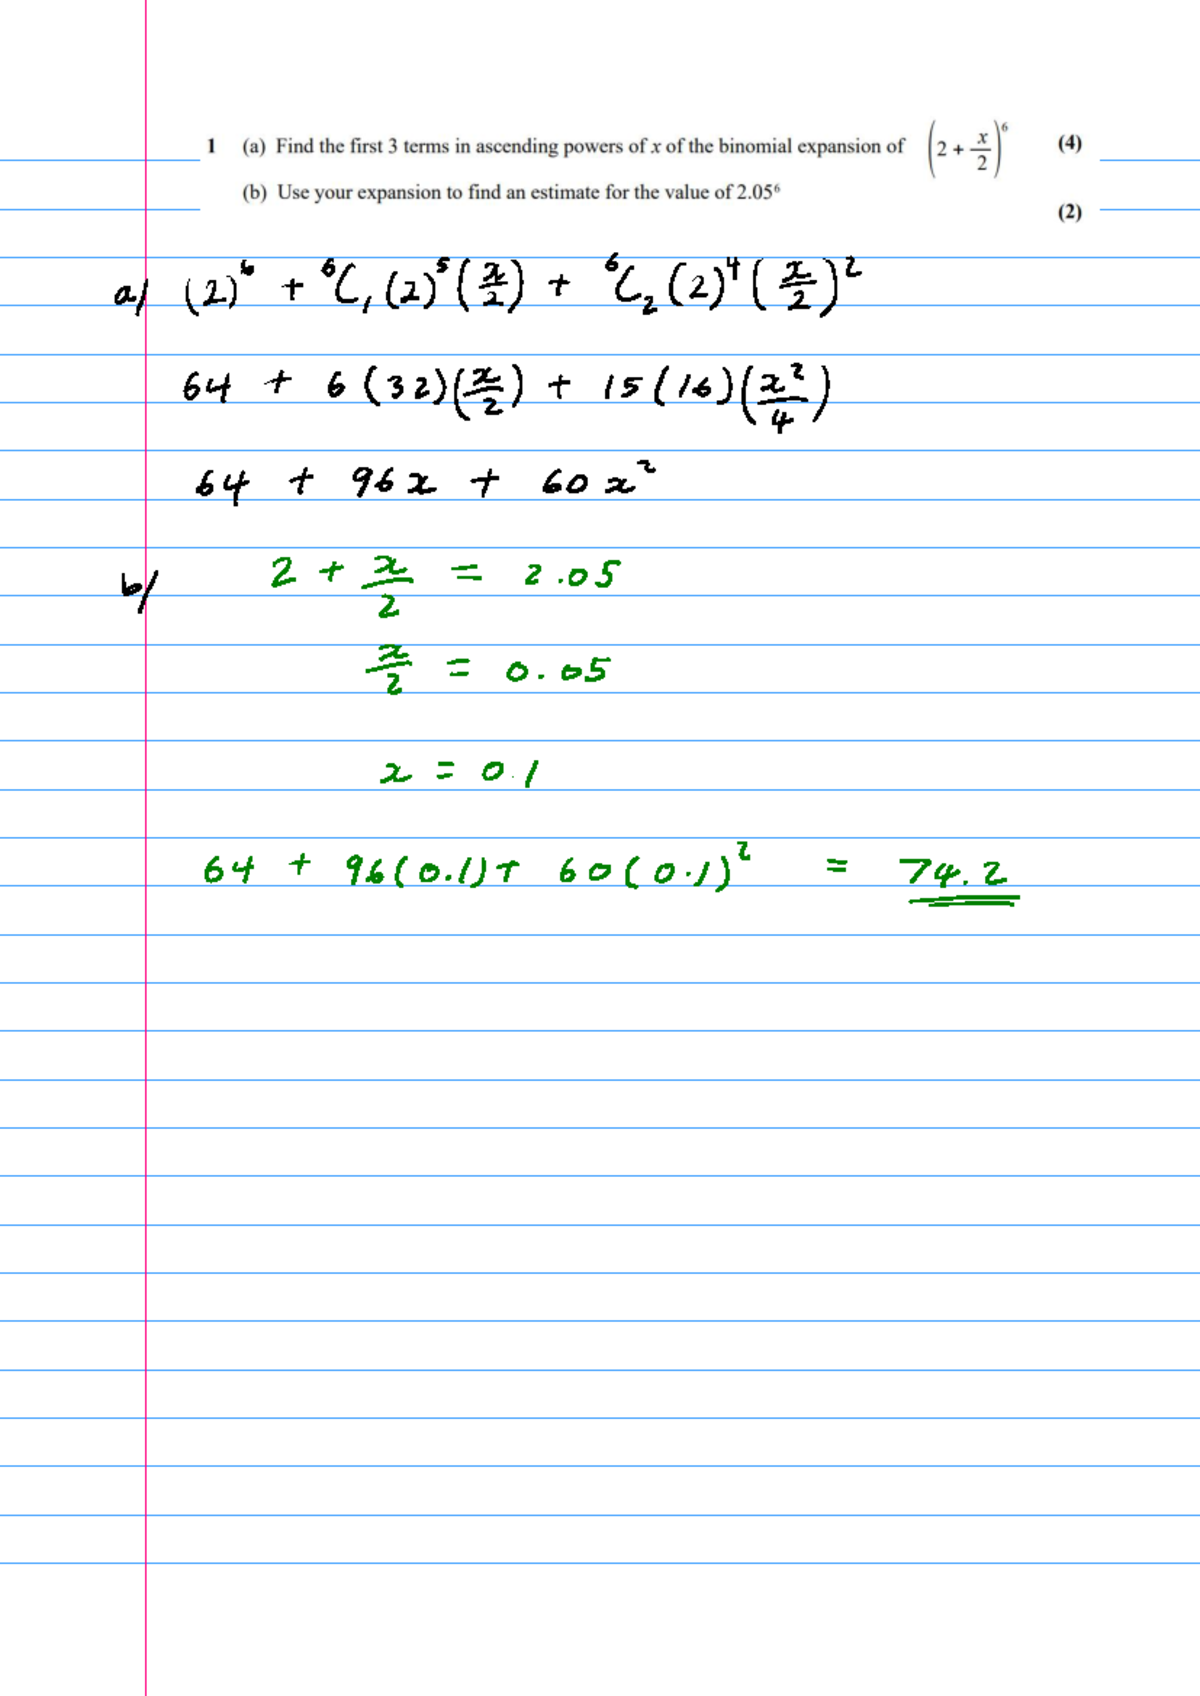 1 (a) Find the first 3 terms in ascending powers of x of the binomial expansion of (2 + x/2)⁶ (4)
(b) Use your expansion to find an estimate for the value of 2.05⁶
(2)
a/ (2)⁶ + ⁶C₁ (2)⁵ (x/2) + ⁶C₂ (2)⁴ (x/2)²
64 + 6 (32)(x/2) + 15 (16)(x²/4)
64 + 96x + 60x²
b/ 2 + x/2 = 2.05
x/2 = 0.05
x = 0.1
64 + 96(0.1) + 60(0.1)² = 74.2